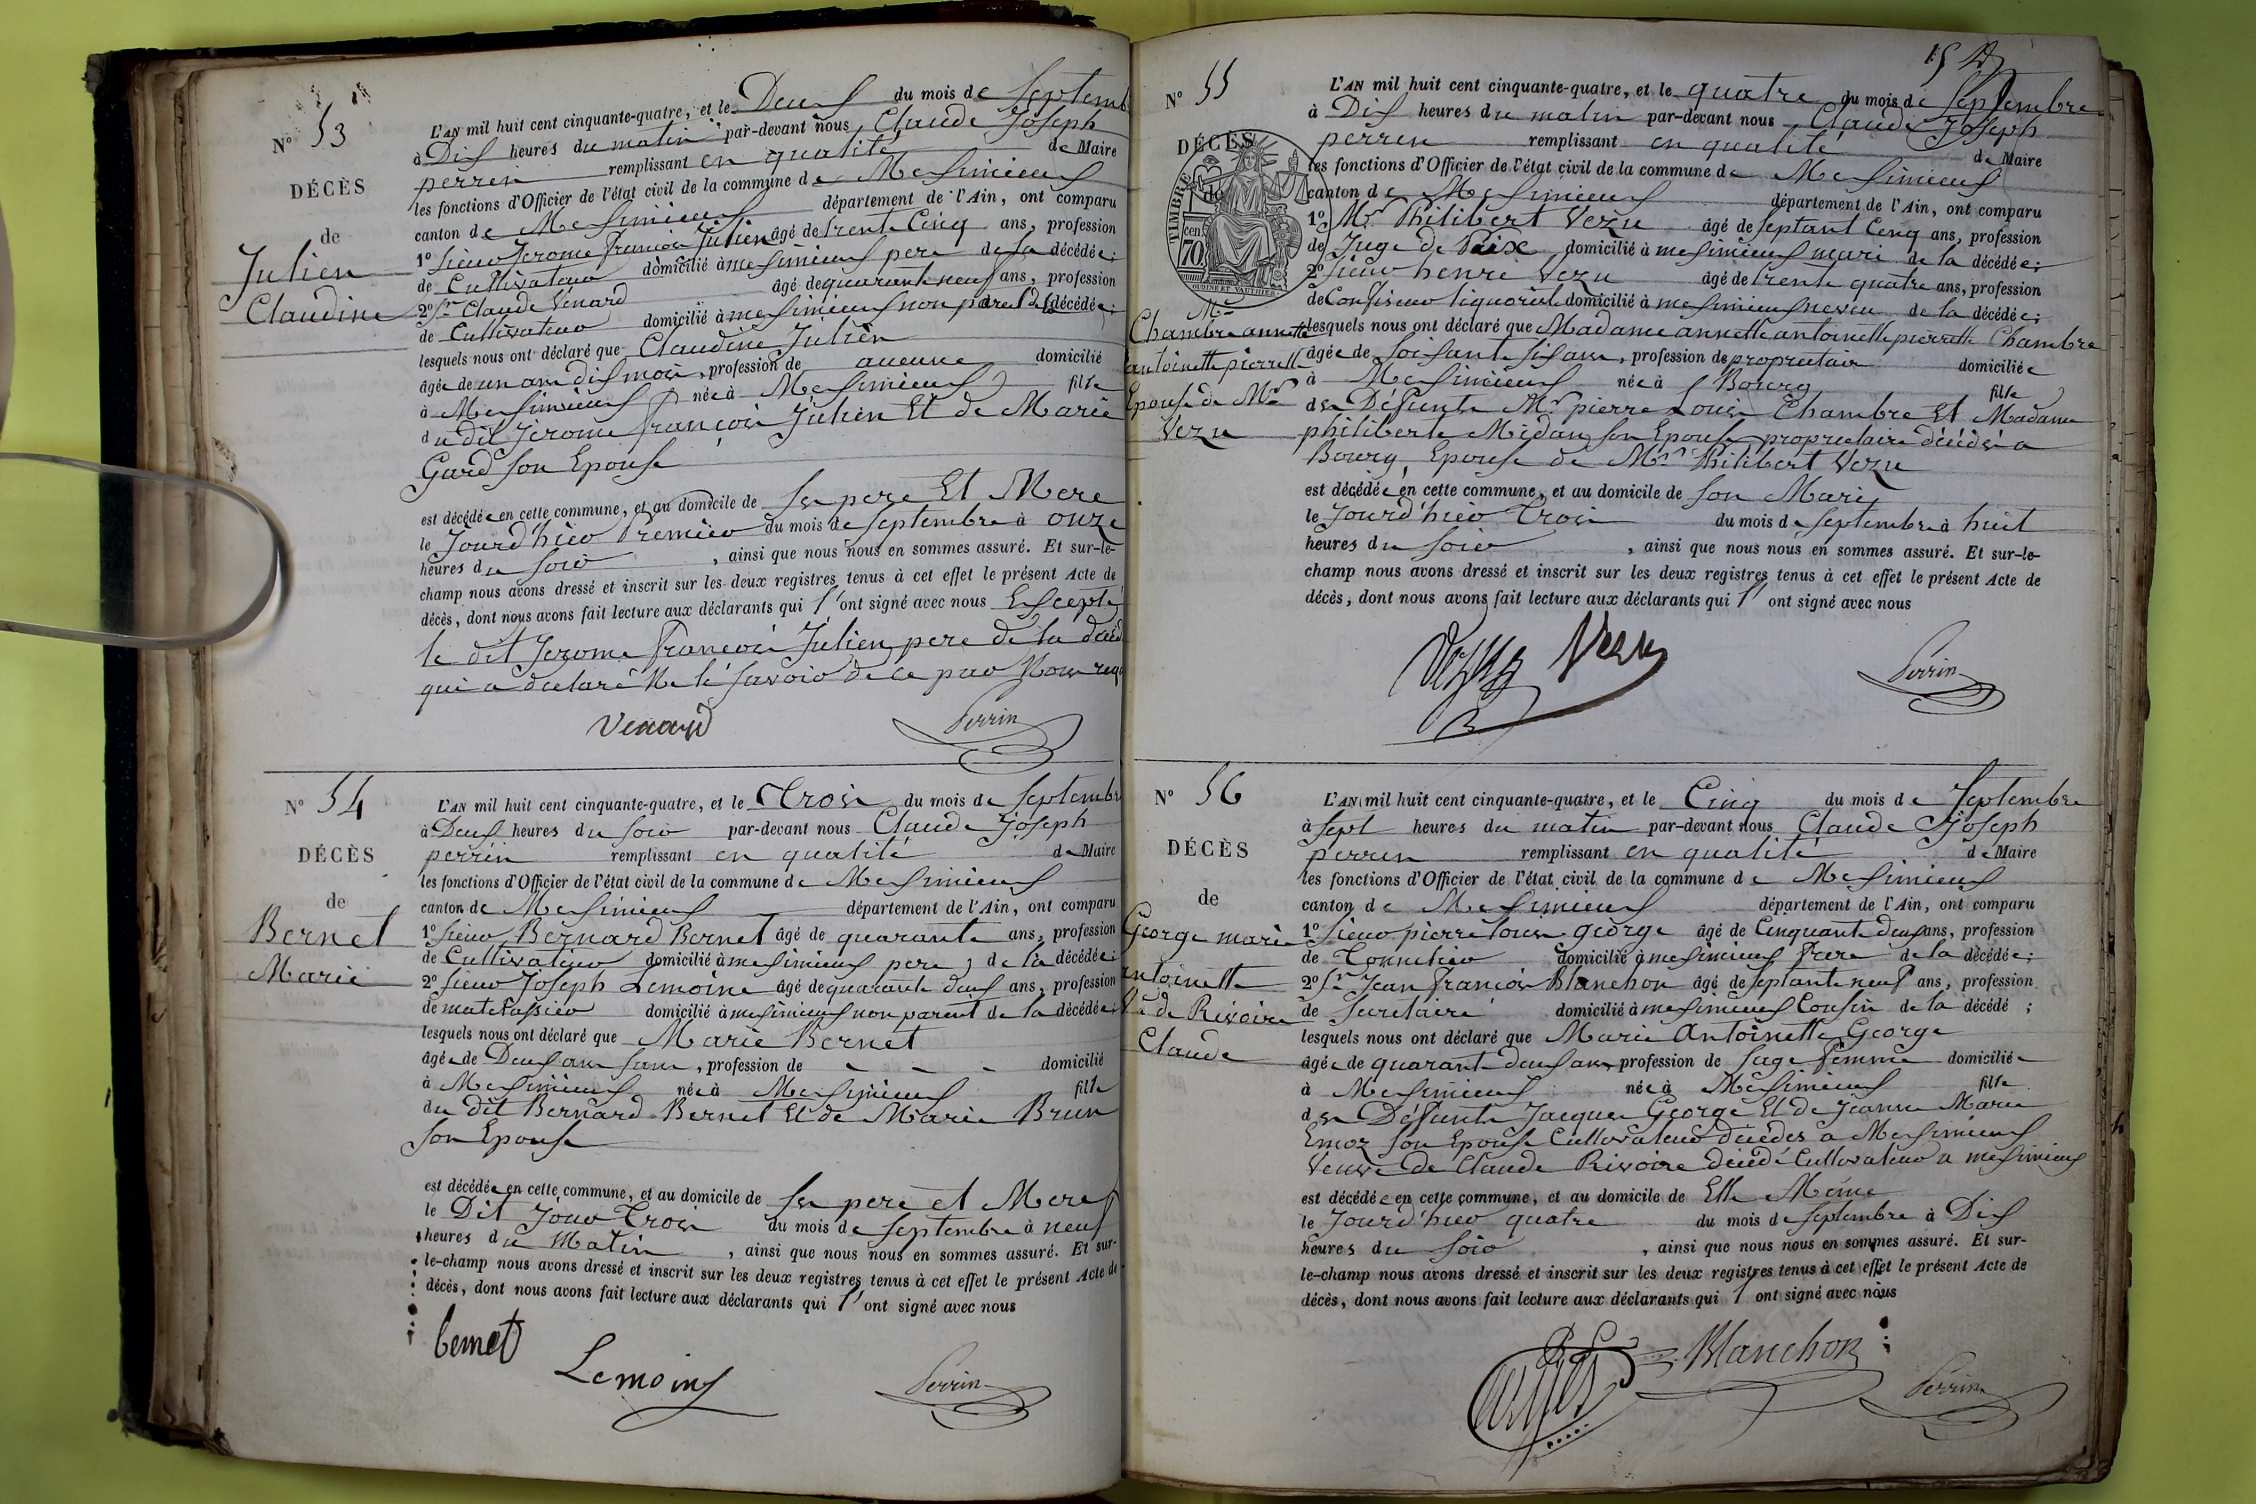 N° 53
DÉCÈS
de
Julien
Claudine
L'AN mil huit cent cinquante-quatre, et le Deux du mois de Septemb
à Dix heures du matin par-devant nous Claude Joseph
perren remplissant en qualité de Maire
les fonctions d'Officier de l'état civil de la commune de Meximieux
canton de Meximieux département de l'Ain, ont comparu
1° Sieur Jerome françois Julien âgé de trente Cinq ans, profession
de Cultivateur domicilié à meximieux pere de la décédée;
2° Sr Claude Vénard âgé de quarante neuf ans, profession
de Cultivateur domicilié à meximieux non parent de la décédée;
lesquels nous ont déclaré que Claudine Julien
âgée de un an dix mois, profession de aucune domicilié
à Meximieux née à Meximieux fille
du dit Jerome françois Julien Et de Marie
Gard son Epouse
est décédée en cette commune, et au domicile de ses pere Et Mere
le Jourd'hier Premier du mois de Septembre à onze
heures du soir, ainsi que nous nous en sommes assuré. Et sur-le-
champ nous avons dressé et inscrit sur les deux registres tenus à cet effet le présent Acte de
décès, dont nous avons fait lecture aux déclarants qui l'ont signé avec nous Excepté
le dit Jerome françois Julien pere de la décéd
qui a declaré Ne le savoir de ce par Nous requi
Venard
Perrin
N° 54
DÉCÈS
de
Bernet
Marie
L'AN mil huit cent cinquante-quatre, et le Trois du mois de Septembr
à Deux heures du soir par-devant nous Claude Joseph
perrén remplissant en qualité de Maire
les fonctions d'Officier de l'état civil de la commune de Meximieux
canton de Meximieux département de l'Ain, ont comparu
1° Sieur Bernard Bernet âgé de quarante ans, profession
de Cultivateur domicilié à meximieux pere, de la décédée;
2° Sieur Joseph Lemoine âgé de quarante deux ans, profession
de matelassier domicilié à meximieux non parent de la décédée;
lesquels nous ont déclaré que Marie Bernet
âgée de Deux ans, profession de - - - domicilié
à Meximieux née à Meximieux fille
du dit Bernard Bernet Et de Marie Brun
son Epouse
est décédée en cette commune, et au domicile de ses pere et Mere
le Dit Jour Trois du mois de Septembre à neuf
heures du Matin, ainsi que nous nous en sommes assuré. Et sur-
le-champ nous avons dressé et inscrit sur les deux registres tenus à cet effet le présent Acte de
décès, dont nous avons fait lecture aux déclarants qui l'ont signé avec nous
bernet
Lemoine
Perrin
N° 55
DÉCÈS
TIMBRE
cen. 70
Me
Chambre annette
antoinette pierrette
Epouse de Mr
Vezu
L'AN mil huit cent cinquante-quatre, et le quatre du mois de Septembre
à Dix heures du matin par-devant nous Claude Joseph
perren remplissant en qualité de Maire
les fonctions d'Officier de l'état civil de la commune de Meximieux
canton de Meximieux département de l'Ain, ont comparu
1° Mr Philibert Vezu âgé de septant Cinq ans, profession
de Juge de Paix domicilié à meximieux mari de la décédée;
2° Sieur henri Vezu âgé de trente quatre ans, profession
de Confiseur liquoriste domicilié à meximieux neveu de la décédée;
lesquels nous ont déclaré que Madame annette antoinette pierrette Chambre
âgée de soixante six ans, profession de propriétaire domiciliée
à Meximieux née à Bourg fille
des Défunts Mr pierre Louis Chambre Et Madame
philiberte Midan son Epouse propriétaire décédés a
Bourg, Epouse de Mr Philibert Vezu
est décédée en cette commune, et au domicile de son Mari
le Jourd'hier Trois du mois de Septembre à huit
heures du soir, ainsi que nous nous en sommes assuré. Et sur-le-
champ nous avons dressé et inscrit sur les deux registres tenus à cet effet le présent Acte de
décès, dont nous avons fait lecture aux déclarants qui l'ont signé avec nous
Vezu Vezu
Perrin
N° 56
DÉCÈS
de
George marie
antoinette
Ve de Rivoire
Claude
L'AN mil huit cent cinquante-quatre, et le Cinq du mois de Septembre
à sept heures du matin par-devant nous Claude Joseph
perren remplissant en qualité de Maire
les fonctions d'Officier de l'état civil de la commune de Meximieux
canton de Meximieux département de l'Ain, ont comparu
1° Sieur pierre louis george âgé de Cinquante deux ans, profession
de Tonnelier domicilié à meximieux frere de la décédée;
2° Sr Jean françois Blanchon âgé de septante neuf ans, profession
de Secretaire domicilié à meximieux Cousin de la décédé;
lesquels nous ont déclaré que Marie Antoinette George
âgée de quarante deux ans profession de sage femme domiciliée
à Meximieux née à Meximieux fille
des Défunts Jacques George Et de Jeanne Marie
Emoz son Epouse Cultivateur décédés a Meximieux
Veuve de Claude Rivoire décédé Cultivateur a meximieux
est décédée en cette commune, et au domicile de Elle Même
le Jourd'hier quatre du mois de Septembre à Dix
heures du soir, ainsi que nous nous en sommes assuré. Et sur-
le-champ nous avons dressé et inscrit sur les deux registres tenus à cet effet le présent Acte de
décès, dont nous avons fait lecture aux déclarants qui l'ont signé avec nous
Blanchon
Perrin